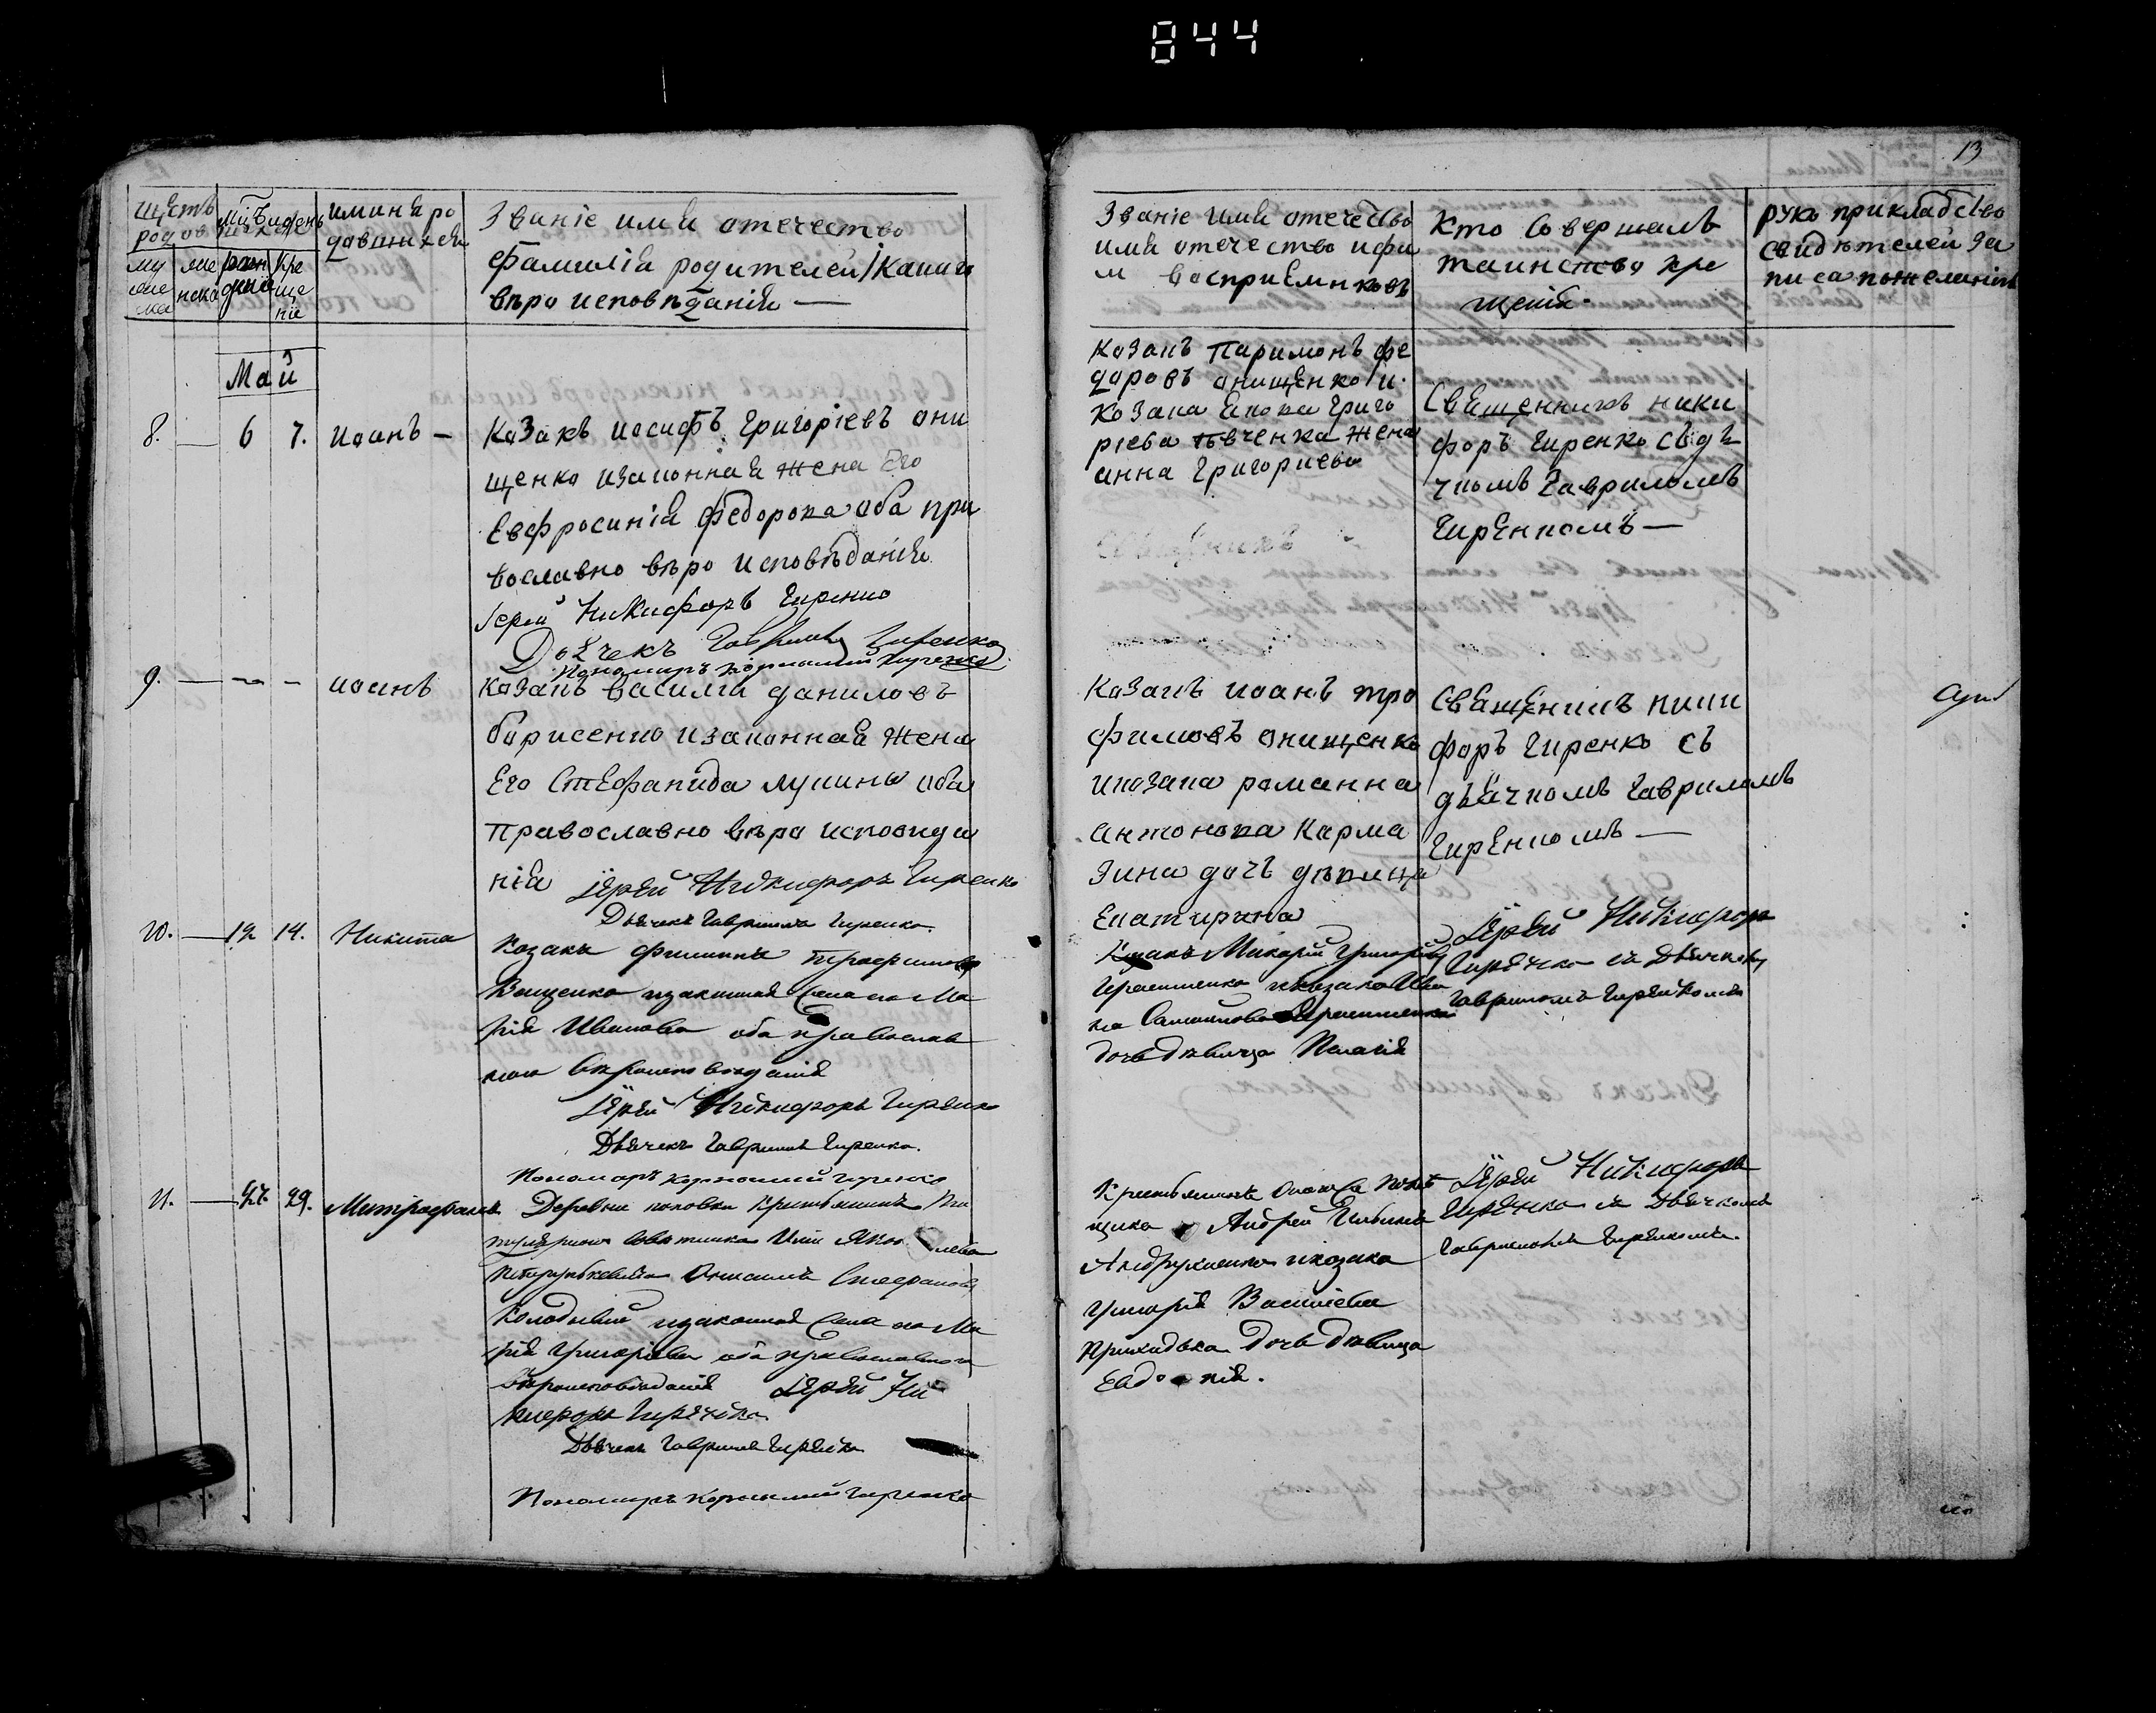 844
13
щетъ
родов
му
же
ска
же
нска
мцъ и день
рож
дніе
кре
ще
ніе
имина ро
давшихся
Званіе имя отечество
фамилія родителей / какаго
вѣро исповѣданія —
Званіе имя отечество
имя отечество ифи
м воспріемнковъ
Кто Совершалъ
таинство кре
щенія.
рукъ прикладство
свидѣтелей за
писа пожеланію
Май
8. — 6 7. иоанъ —
Казакъ иосифъ григоріевъ они
щенко изаконная жена Его
Евфросинія федорова оба пра
вославно вѣро исповѣданія
Іерей Никифоръ Гиренко
Дьячекъ Гавриилъ Гиренко
Пономаръ Корнилий Гиренко
Казакъ Паримонъ фе
доровъ онищенко и
козака григо
ріева жена
анна григориева
Свещенникъ ники
форъ Гиренко Съ дья
чкомъ Гавриломъ
Гиренкомъ —
9. — — — иоанъ
казакъ василий даниловъ
борисенко изаконная жена
Его Стефанида лукина оба
православно вѣро исповида
нія Іерей Никифоръ Гиренко
Дьячекъ Гавриилъ Гиренко.
Казакъ иоанъ тро
фимовъ онищенко
иказака романна
антонова Карма
зина дочъ дѣвица
Екатирина
Священикъ ники
форъ Гиренко съ
дьячкомъ Гавриломъ
Гиренкомъ —
10. — 12 14. Никита
Козакъ филипъ трофимовъ
изаконная жена его Ма
рія Иванова оба православ
ного вѣроисповѣданія
Іерей Никифоръ Гиренко
Дьячекъ Гавриилъ Гиренко.
Пономаръ Корнилий Гиренко
Козакъ Макарій Григоріевъ
иказака Ива
на
дочь дѣвица Пелагія
Іерей Никифоръ
Гиренко съ Дьячкомъ
Гавриломъ Гиренкомъ
11. — 27. 29. Митрофанъ
Деревни поповки Крестьянинъ
Стефановъ
Колодный изаконная жена его Ма
рія Григоріева оба православного
вѣроисповѣданія Іерей Ни
кифоръ Гиренко
Дьячекъ Гавриилъ Гиренко
Пономаръ Корнилий Гиренко
Крестьянинъ
щика Андрей
Андрущенко иказака
Григорія Василіева
Прихидька дочь дѣвица
Евдокія.
Іерей Никифоръ
Гиренко съ Дьячкомъ
Гавриломъ Гиренкомъ.